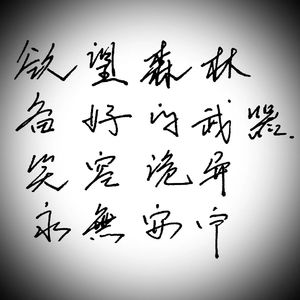 欲望森林
备好的武器.
笑容诡异
永無安宁